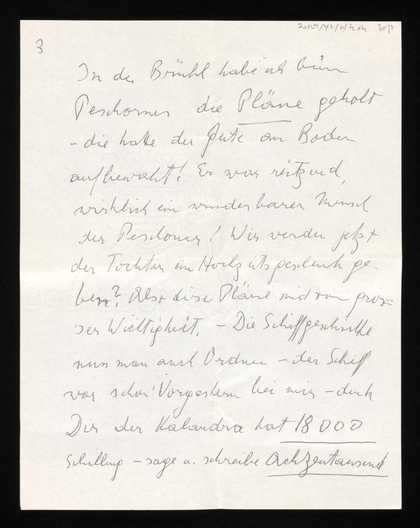 3
In der Brühl habe ich beim
Peschorner die Pläne geholt
– die hatte der Gute am Boden
aufbewahrt! Er war reizend,
wirklich ein wunderbarer Mensch
der Peschorner! Wir werden jetzt
der Tochter ein Hochzeitsgeschenk ge-
ben? Also diese Pläne sind von gros-
ser Wichtigkeit. – Die Schiffgeschichte
muss man auch Ordnen – der Schiff
war schon Vorgestern bei mir – doch
Du der Kalandra hat 18 000
Schilling – sage u. schreibe Achtzentausend